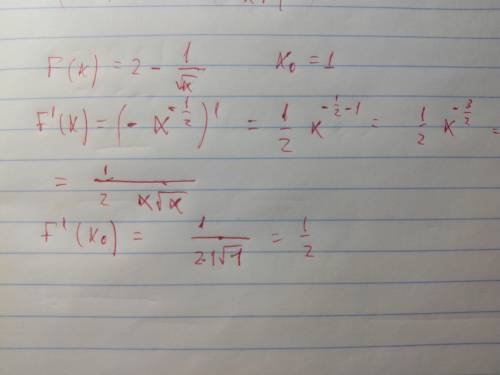 F(x) = 2 - 1/√x    x₀ = 1
F'(x) = (- x^(-1/2))' = 1/2 x^(-1/2 - 1) = 1/2 x^(-3/2) =
= 1/(2 x√x)
F'(x₀) = 1/(2·1√1) = 1/2